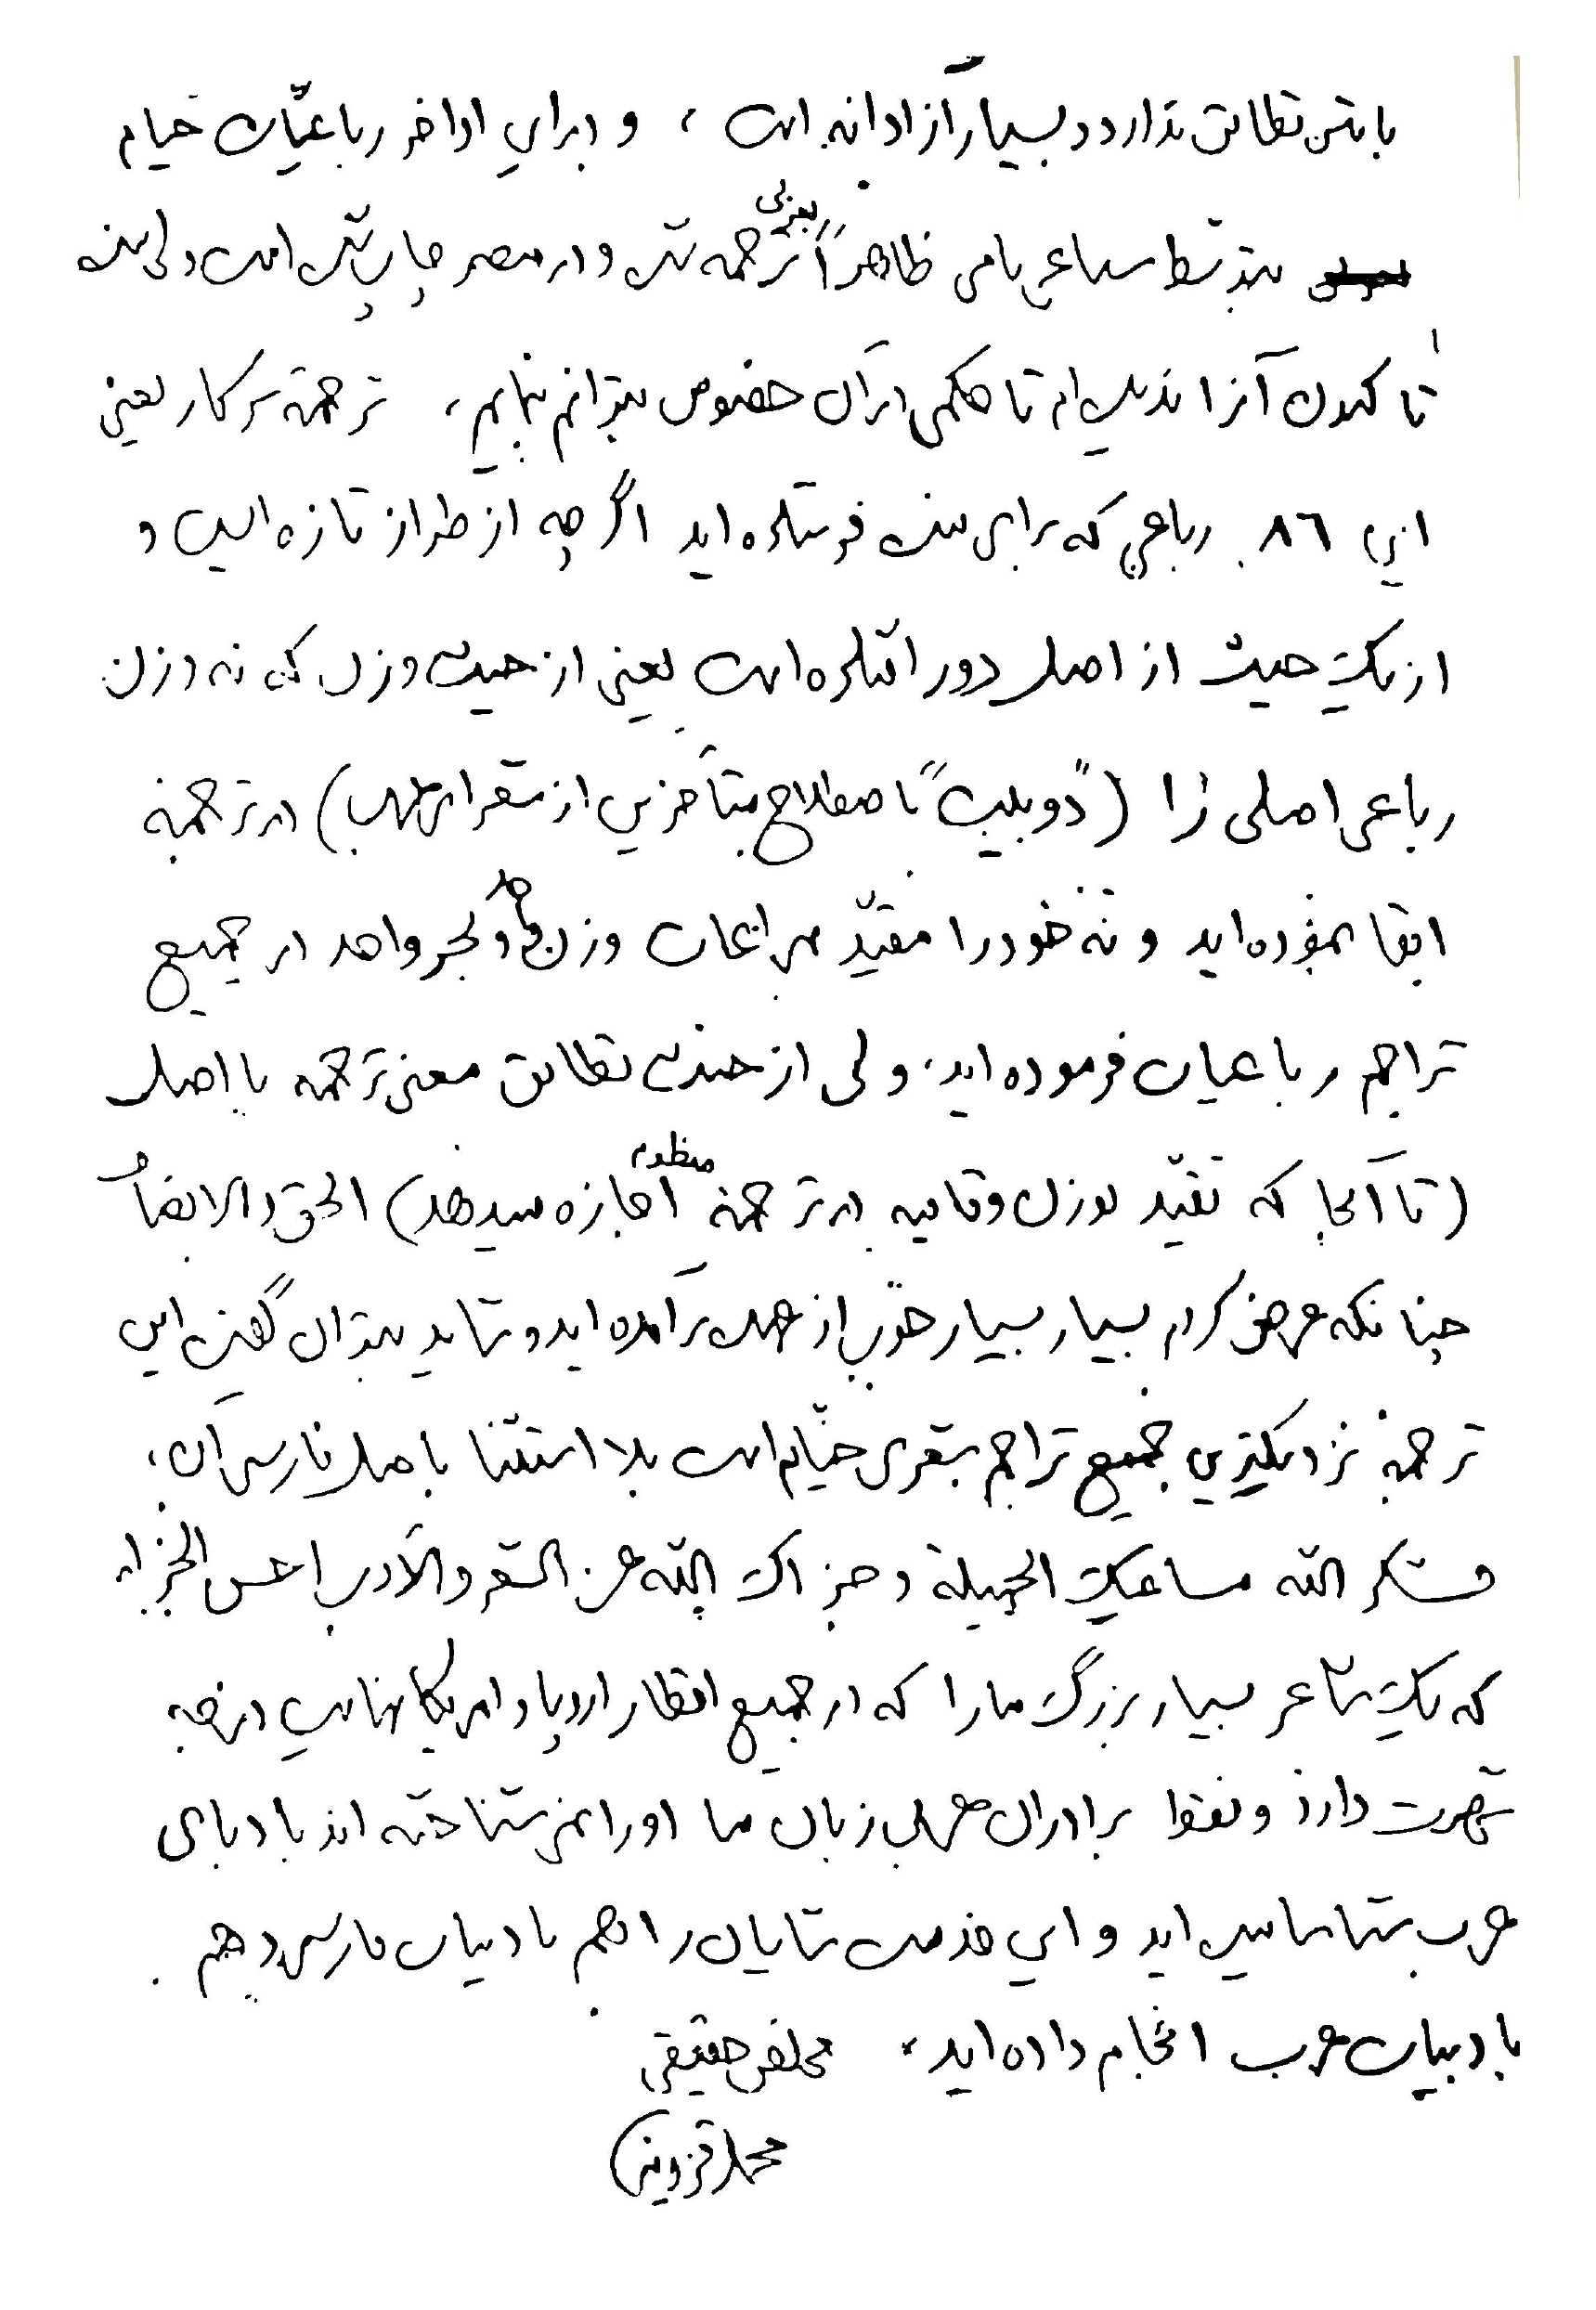 با متن تطابق ندارد و بسیار آزادانه است ، و در این اواخر رباعیّات خیام
بتوسّط سباعی نامی ظاهراً بعربی ترجمه شده و در مصر چاپ شده است ولی من
تا کنون آنرا ندیده‌ام تا حکمی در آن خصوص بتوانم بنمایم ، ترجمهٔ سرکار یعنی
این ٨٦ رباعی که برای من فرستاده اید اگر چه از طراز تازه ایست و
از یک حیث از اصل دور افتاده است یعنی از حیث وزن که نه وزن
رباعی اصلی را ( "دوبیت" باصطلاح متأخرین از شعرای عرب ) در ترجمه
ابقا نموده اید و نه خود را مقیّد بمراعات وزن واحد و بحر واحد در جمیع
تراجم رباعیات فرموده اید ، ولی از حیث تطابق معنی ترجمه با اصل
( تا آنجا که تقیّد بوزن و قافیه در ترجمهٔ منظوم اجازه میدهد ) الحق والانصاف
چنانکه عرض کردم بسیار بسیار خوب از عهده برآمده اید و شاید بتوان گفت این
ترجمه نزدیکترین جمیع تراجم شعری خیّام است بلا استثنا باصل فارسی آن ،
فشکر الله مساعیک الجمیلة و جزاک الله عن الشعر والأدب احسن الجزاء
که یک شاعر بسیار بزرگ ما را که در جمیع اقطار اروپا و امریکا نهایت درجه
شهرت دارد و فقط برادران عرب زبان ما او را نمی شناخته اند بادبای
عرب شناسانیده اید و این خدمت شایان را هم بادبیات فارسی و هم
بادبیات عرب انجام داده اید ، مخلص حقیقی
محمد قزوینی